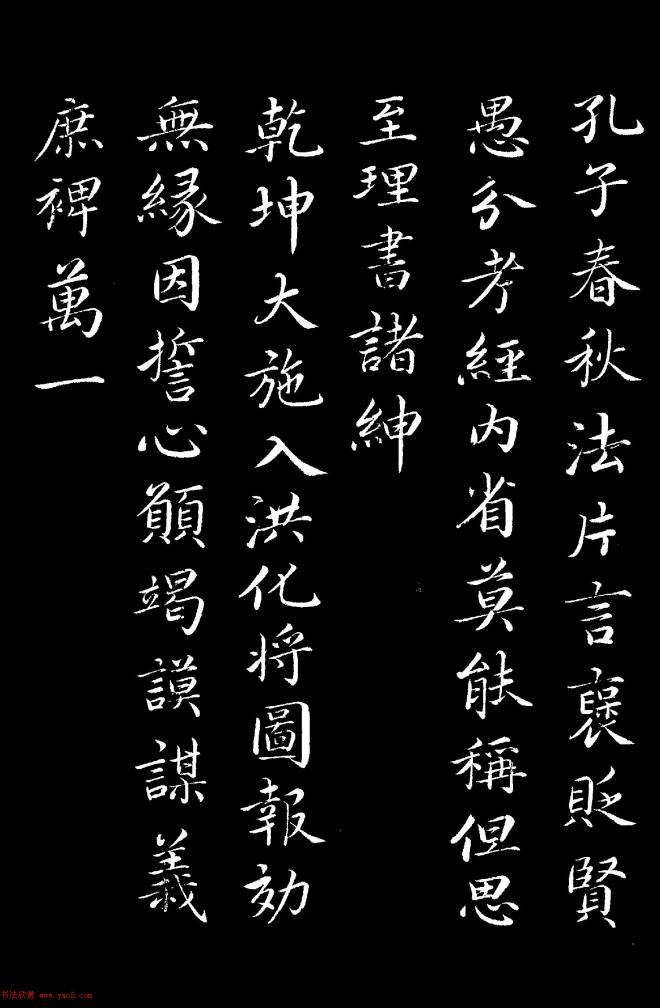 孔子春秋法片言褒貶賢
愚分考經内省莫能稱但思
至理書諸紳
乾坤大施入洪化將圖報効
無縁因誓心願竭謨謀義
庶裨萬一
书法欣赏 www.yac8.com